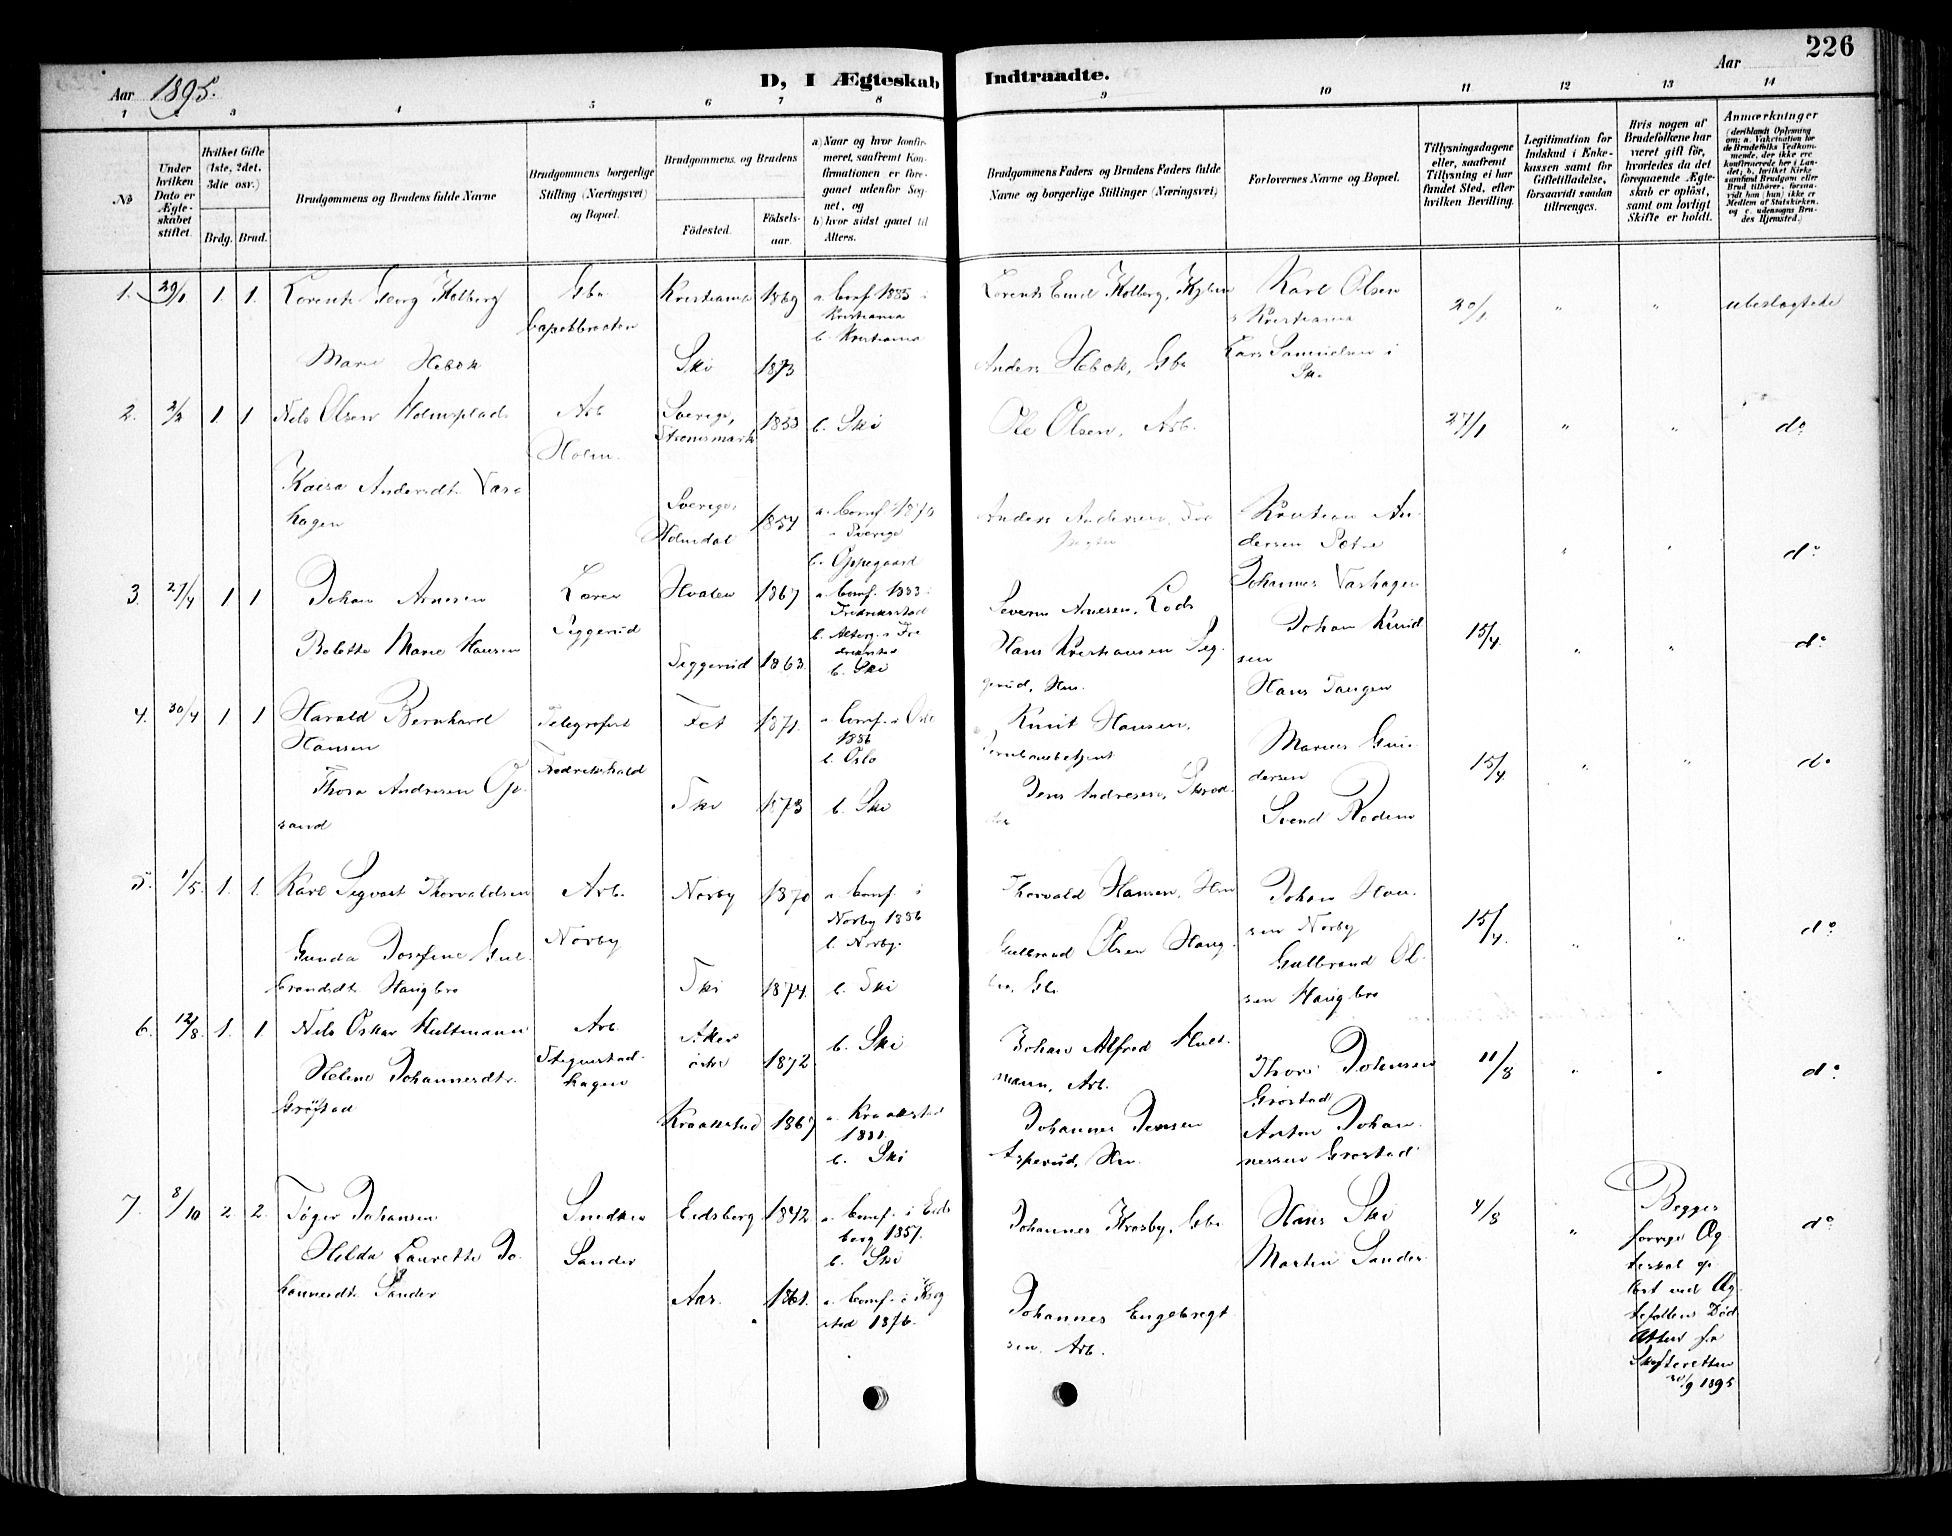 226
Aar 1895.
D, I Ægteskab Indtraadte.
Aar
1 2 3 4 5 6 7 8 9 10 11 12 13 14
№
Under hvilken Dato er Ægteskabet stiftet.
Hvilket Gifte (1ste, 2det, 3die osv.)
Brdg. Brud.
Brudgommens og Brudens fulde Navne
Brudgommens borgerlige Stilling (Næringsvei) og Bopæl.
Brudgommens og Brudens
Födested.
Födselsaar.
a) Naar og hvor konfirmeret, saafremt Konfirmationen er foregaaet udenfor Sognet, og
b) hvor sidst gaaet til Alters.
Brudgommens Faders og Brudens Faders fulde Navne og borgerlige Stillinger (Næringsvei)
Forlovernes Navne og Bopæl.
Tillysningsdagene eller, saafremt Tillysning ei har fundet Sted, efter hvilken Bevilling.
Legitimation for Indskud i Enkekassen samt for Giftetilladelse, forsaavidt saadan tiltrænges.
Hvis nogen af Brudefolkene har været gift før, hvorledes da det foregaaende Ægteskab er oplöst, samt om lovligt Skifte er holdt.
Anmærkninger
(deriblandt Oplysning om: a. Vakcination for de Brudefolks Vedkommende, der ikke ere konfirmerede her i Landet; b. hvilket Kirkesamfund Brudgom eller Brud tilhører, forsaavidt han (hun) ikke er Medlem af Statskirken, og c. udensogns Brudes Hjemsted.)
1. 29/1 1. 1. Lorents Georg Holberg
Gbr
Kristiania 1869
a. Conf. 1885 i
Kristiania
b. Kristiania
Lorents Emil Holberg,
Karl Olsen
Kristiania
20/1 " " ubeslægtede
Marie Hebæk
Ski 1873
Anders Hebæk, Gbr
Lars Samuelsen i
Ski
2. 2/2 1. 1 Nils Olsen Holmsplads
Arb
Holm.
Sverige, 1853
b. Ski
Ole Olsen, Arb.
27/1 " " do
Kaisa Andersdt. Vars
hagen
Sverige, 1854
Holmedal
a. Conf. 1870
i Sverige
b. Oppegaard
Anders Andersen,
Kristian An
dersen
Johannes Varshagen
" " do
3. 27/4 1 1 Johan Arnesen
Siggerud
Hvaler 1867
a. Conf. 1883 i
Fredrikstad
Severin Arnesen, Lods
Johan Knud
sen
15/4. " " do
Bolette Marie Hansen
Siggerud 1863.
b. Ski
Hans Kristiansen Sig
gerud, Hm.
Hans Tangen
4. 30/4 1 1 Harald Bernhard
Hansen
Telegrafist
Fredrikshald
Fet 1871.
a. Conf. i Oslo
1886
b. Oslo
Knut Hansen,
Jernbanebetjent
Marius Gun
dersen
15/4. " " do
Thora Andresen Op
sand
Ski 1873
b. Ski
Jens Andresen, Skræd
der
Svend
5. 1/5. 1. 1. Karl Sigvart Thorvaldsen
Arb.
Norby
Norby 1870
a. Conf. i
Norby 1886
b. Norby.
Thorvald Hansen, Hm
Johan Han
sen Norby
15/4. " " do
Gunda Josefine Gul
brandsdt. Haugbro
Ski 1874.
b. Ski
Gulbrand Olsen Haug
bro, Gbr.
Gulbrand Ol
sen Haugbro
6. 12/8. 1. 1 Nils Oskar Hultmann
Arb.
Aker
1872
b. Ski
Johan Alfred Hult
mann, Arb.
Thore Johansen
Grøstad
11/8 " " do
Helene Johannesdt.
Grøstad
Kraakstad 1867
a. Kraakstad
1881.
b. Ski
Johannes Jensen
Asperud, Hm.
Anton Johan
nessen Grøstad
7. 8/10 2. 2. Tøger Johansen
Snedker
Sander
Eidsberg 1842
a. Conf. i Eids
berg 1857.
b. Ski
Johannes Krosby, Gbr
Hans Ski
4/8 " Begges
forrige Æg
teskab op
løst ved Æg
tefællens Død
Attest fra
Skifteretten
30/9 1895
do
Hilda Laurette Jo
hannesdt. Sander
Aas. 1861.
a. Conf. i Krog
stad 1876.
Johannes Engebregt
sen. Arb.
Martin Sander